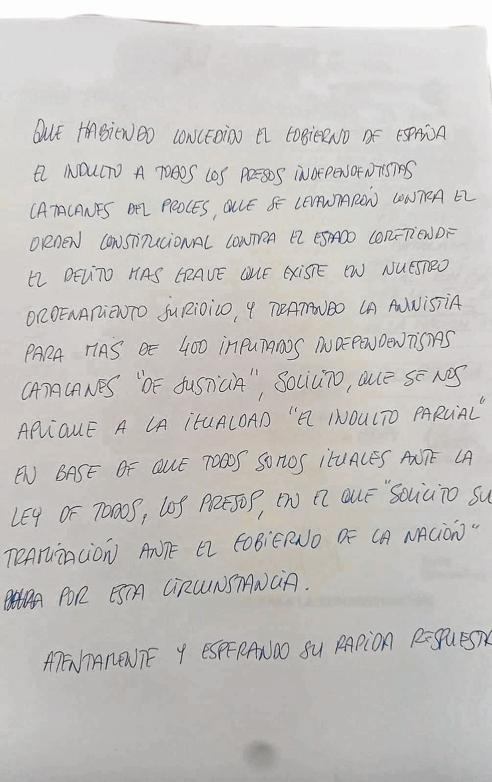 QUE HABIENDO CONCEDIDO EL GOBIERNO DE ESPAÑA
EL INDULTO A TODOS LOS PRESOS INDEPENDENTISTAS
CATALANES DEL PROCES, QUE SE LEVANTARÓN CONTRA EL
ORDEN CONSTITUCIONAL CONTRA EL ESTADO COMETIENDO
EL DELITO MAS GRAVE QUE EXISTE EN NUESTRO
ORDENAMIENTO JURIDICO, Y TRATANDO LA ANNISTIA
PARA MÁS DE 400 IMPUTADOS INDEPENDENTISTAS
CATALANES "DE JUSTICIA", SOLICITO, QUE SE NOS
APLIQUE A LA IGUALDAD "EL INDULTO PARCIAL"
EN BASE DE QUE TODOS SOMOS IGUALES ANTE LA
LEY DE TODOS, LOS PRESOS, EN EL QUE "SOLICITO SU
TRAMITACIÓN ANTE EL GOBIERNO DE LA NACIÓN"
POR ESTA CIRCUNSTANCIA.
ATENTAMENTE Y ESPERANDO SU RAPIDA RESPUESTA